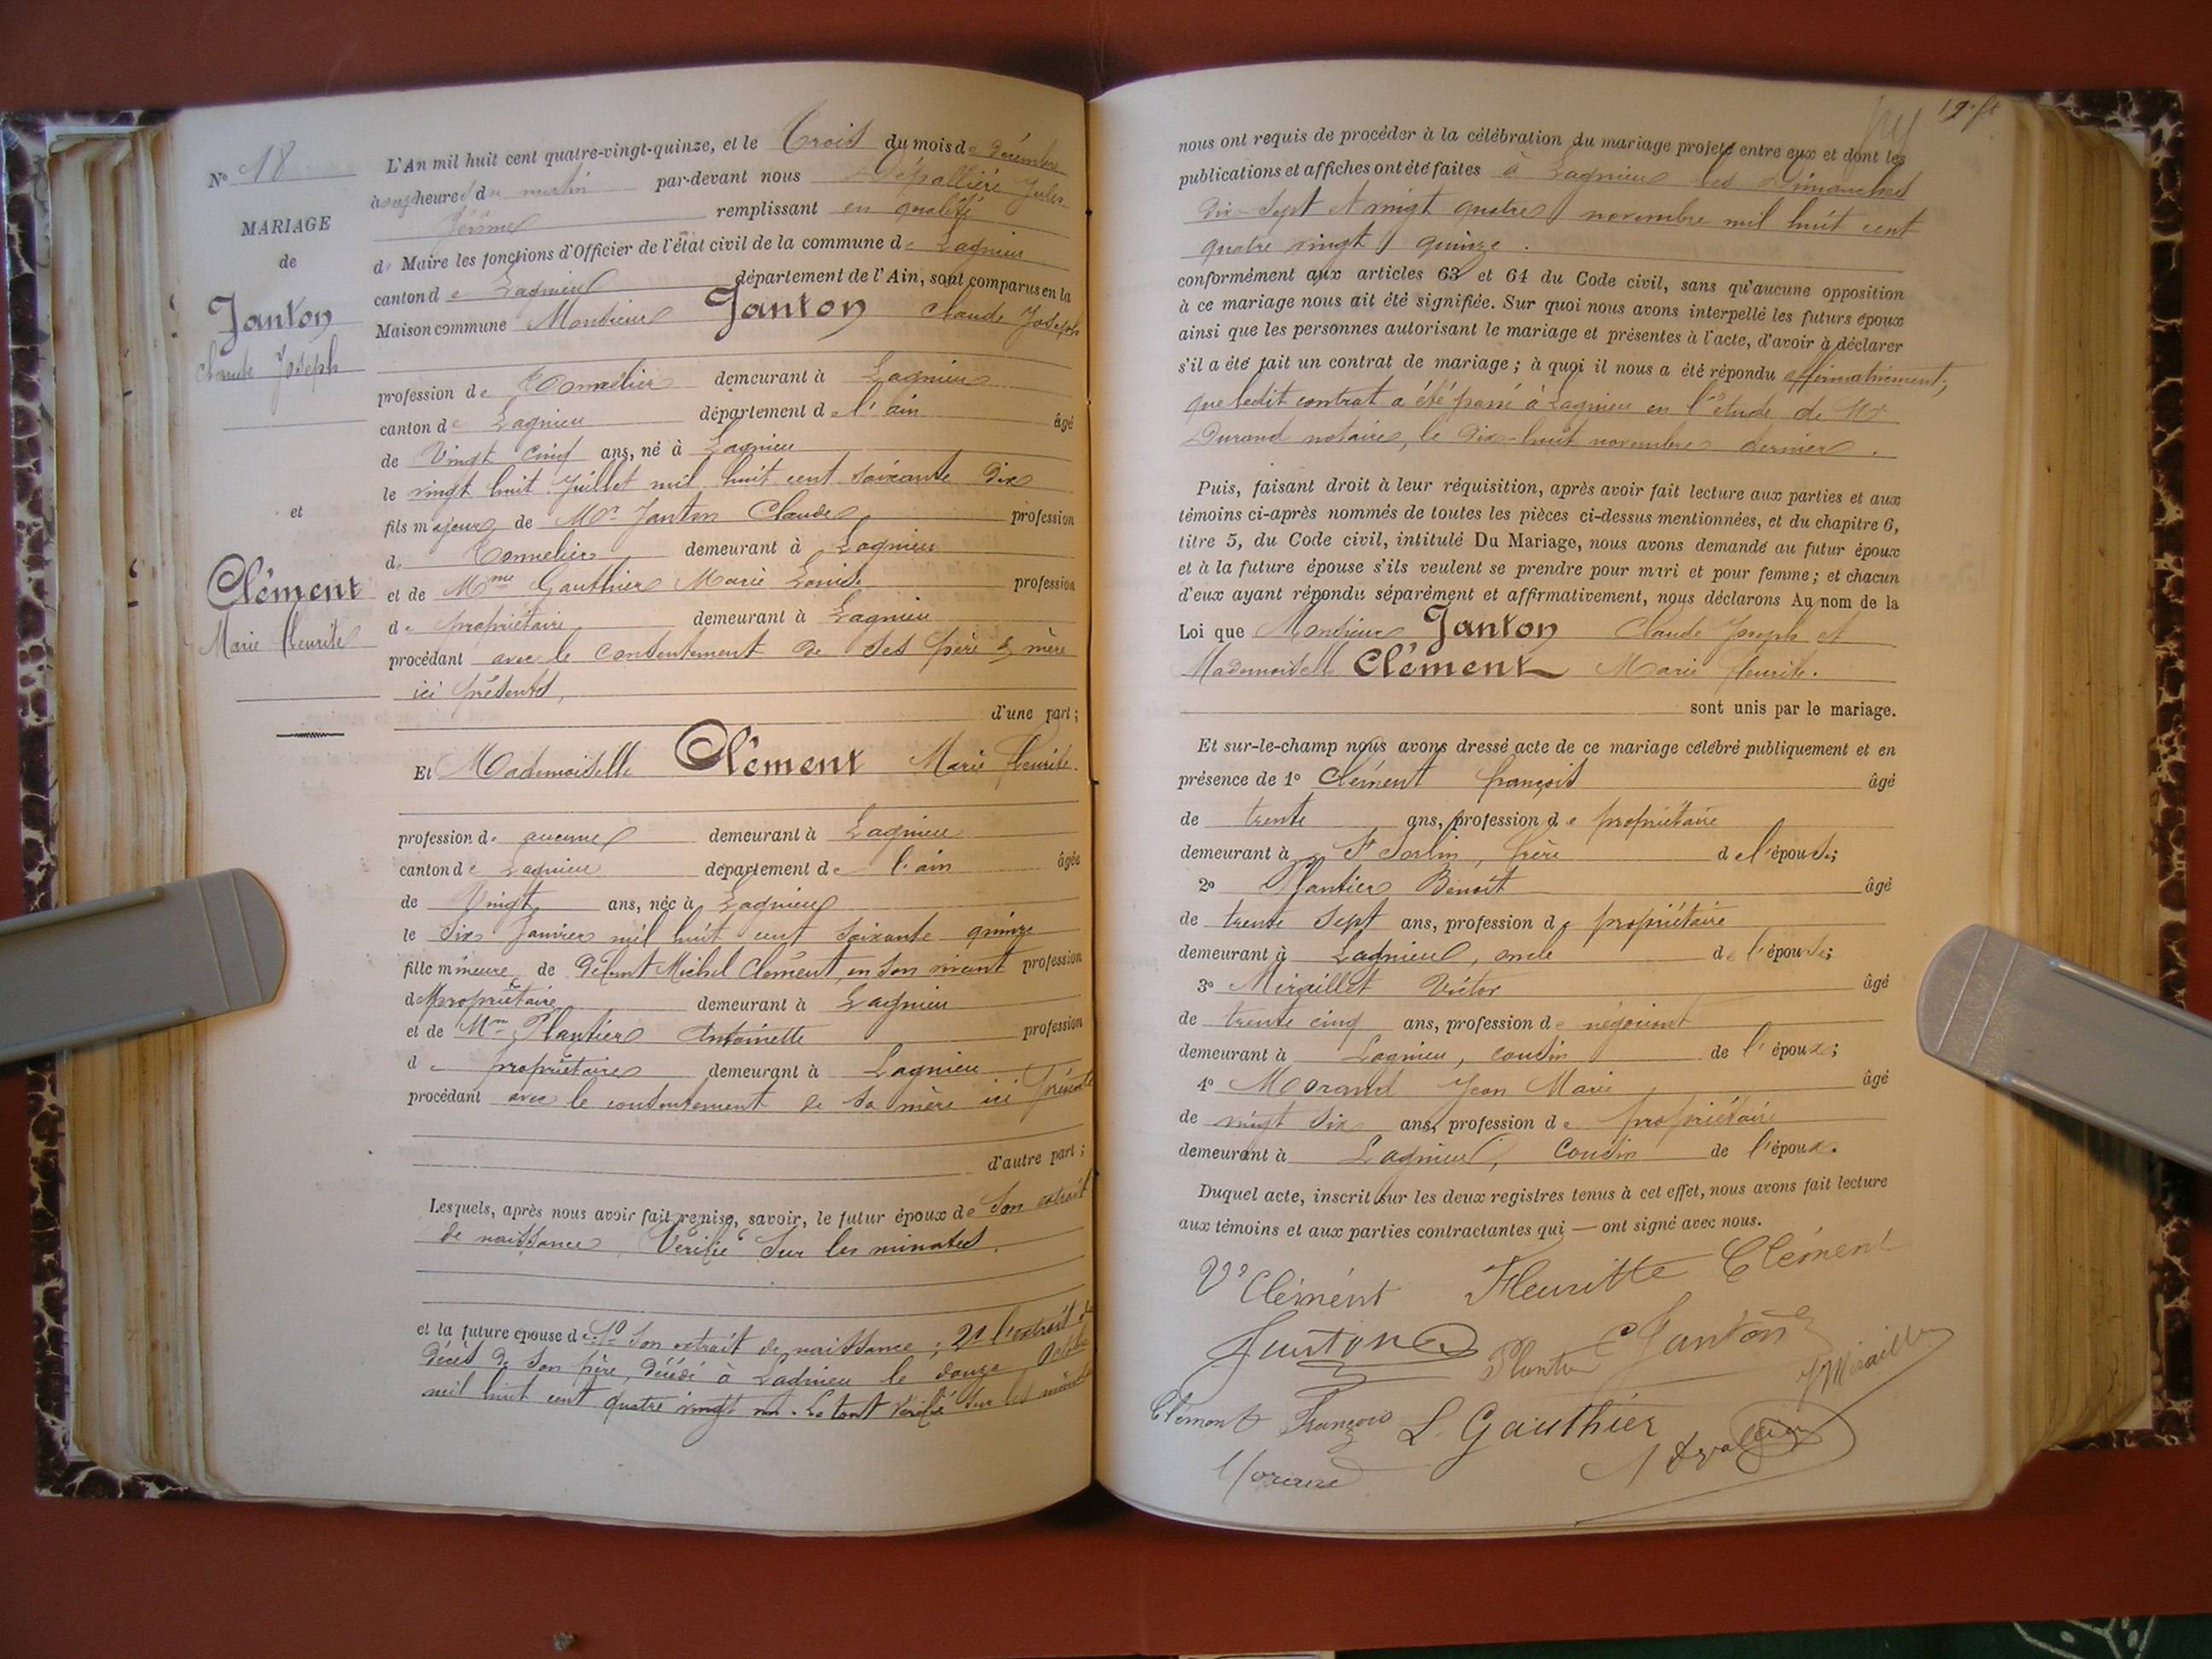 N° 18
MARIAGE
de
Janton
Claude Joseph
et
Clément
Marie fleurite
L'An mil huit cent quatre-vingt-quinze, et le Trois du mois de Décembre
à onze heures du matin par-devant nous Dépallière Jules
Jérôme remplissant en qualité
de Maire les fonctions d'Officier de l'état civil de la commune de Lagnieu
canton de Lagnieu département de l'Ain, sont comparus en la
Maison commune Monsieur Janton Claude Joseph
profession de Tonnelier demeurant à Lagnieu
canton de Lagnieu département de l'ain âgé
de Vingt cinq ans, né à Lagnieu
le vingt huit Juillet mil huit cent soixante dix
fils majeur de Mr Janton Claude profession
de Tonnelier demeurant à Lagnieu
et de Mme Gauthier Marie Louise profession
de propriétaire demeurant à Lagnieu
procédant avec le consentement de ses père & mère
ici présents,
d'une part;
Et Mademoiselle Clément Marie fleurite.
profession de aucune demeurant à Lagnieu
canton de Lagnieu département de l'ain âgée
de Vingt ans, née à Lagnieu
le Six Janvier mil huit cent soixante quinze
fille mineure de Défunt Michel Clément, en son vivant profession
de propriétaire demeurant à Lagnieu
et de Mme Plantier Antoinette profession
de propriétaire demeurant à Lagnieu
procédant avec le consentement de sa mère ici présente
d'autre part;
Lesquels, après nous avoir fait remise, savoir, le futur époux de son extrait
de naissance, Vérifié sur les minutes.
et la future épouse de: 1° Son extrait de naissance; 2° l'extrait de
décès de son père, décédé à Lagnieu le douze Octobre
mil huit cent quatre vingt un. Le tout vérifié sur les minutes
19
nous ont requis de procéder à la célébration du mariage projeté entre eux et dont les
publications et affiches ont été faites à Lagnieu les Dimanches
Dix-Sept et vingt quatre novembre mil huit cent
quatre vingt quinze.
conformément aux articles 63 et 64 du Code civil, sans qu'aucune opposition
à ce mariage nous ait été signifiée. Sur quoi nous avons interpellé les futurs époux
ainsi que les personnes autorisant le mariage et présentes à l'acte, d'avoir à déclarer
s'il a été fait un contrat de mariage; à quoi il nous a été répondu affirmativement;
que ledit contrat a été passé à Lagnieu en l'étude de Me
Durand notaire, le Dix-huit novembre dernier.
Puis, faisant droit à leur réquisition, après avoir fait lecture aux parties et aux
témoins ci-après nommés de toutes les pièces ci-dessus mentionnées, et du chapitre 6,
titre 5, du Code civil, intitulé Du Mariage, nous avons demandé au futur époux
et à la future épouse s'ils veulent se prendre pour mari et pour femme; et chacun
d'eux ayant répondu séparément et affirmativement, nous déclarons Au nom de la
Loi que Monsieur Janton Claude Joseph et
Mademoiselle Clément Marie fleurite.
sont unis par le mariage.
Et sur-le-champ nous avons dressé acte de ce mariage célébré publiquement et en
présence de 1° Clément françois âgé
de trente ans, profession de propriétaire
demeurant à St Sorlin, frère de l'épouse;
2° Plantier Benoît âgé
de trente sept ans, profession de propriétaire
demeurant à Lagnieu, oncle de l'épouse;
3° Miraillet Victor âgé
de trente cinq ans, profession de négociant
demeurant à Lagnieu, cousin de l'époux;
4° Morand Jean Marie âgé
de vingt Six ans, profession de propriétaire
demeurant à Lagnieu, Cousin de l'époux.
Duquel acte, inscrit sur les deux registres tenus à cet effet, nous avons fait lecture
aux témoins et aux parties contractantes qui — ont signé avec nous.
Ve Clément Fleuritte Clément
Janton Plantier C Janton Miraillet
Clément François L. Gauthier
Morand